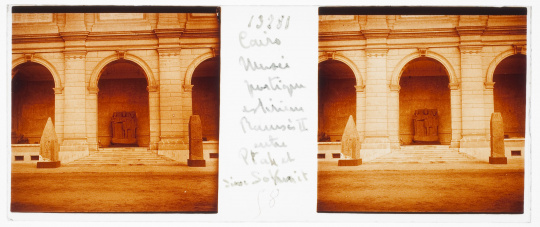 13281
Cairo
Musée
portique
extérieur
Ramsès II
entre
Ptah et
Sekmet
58